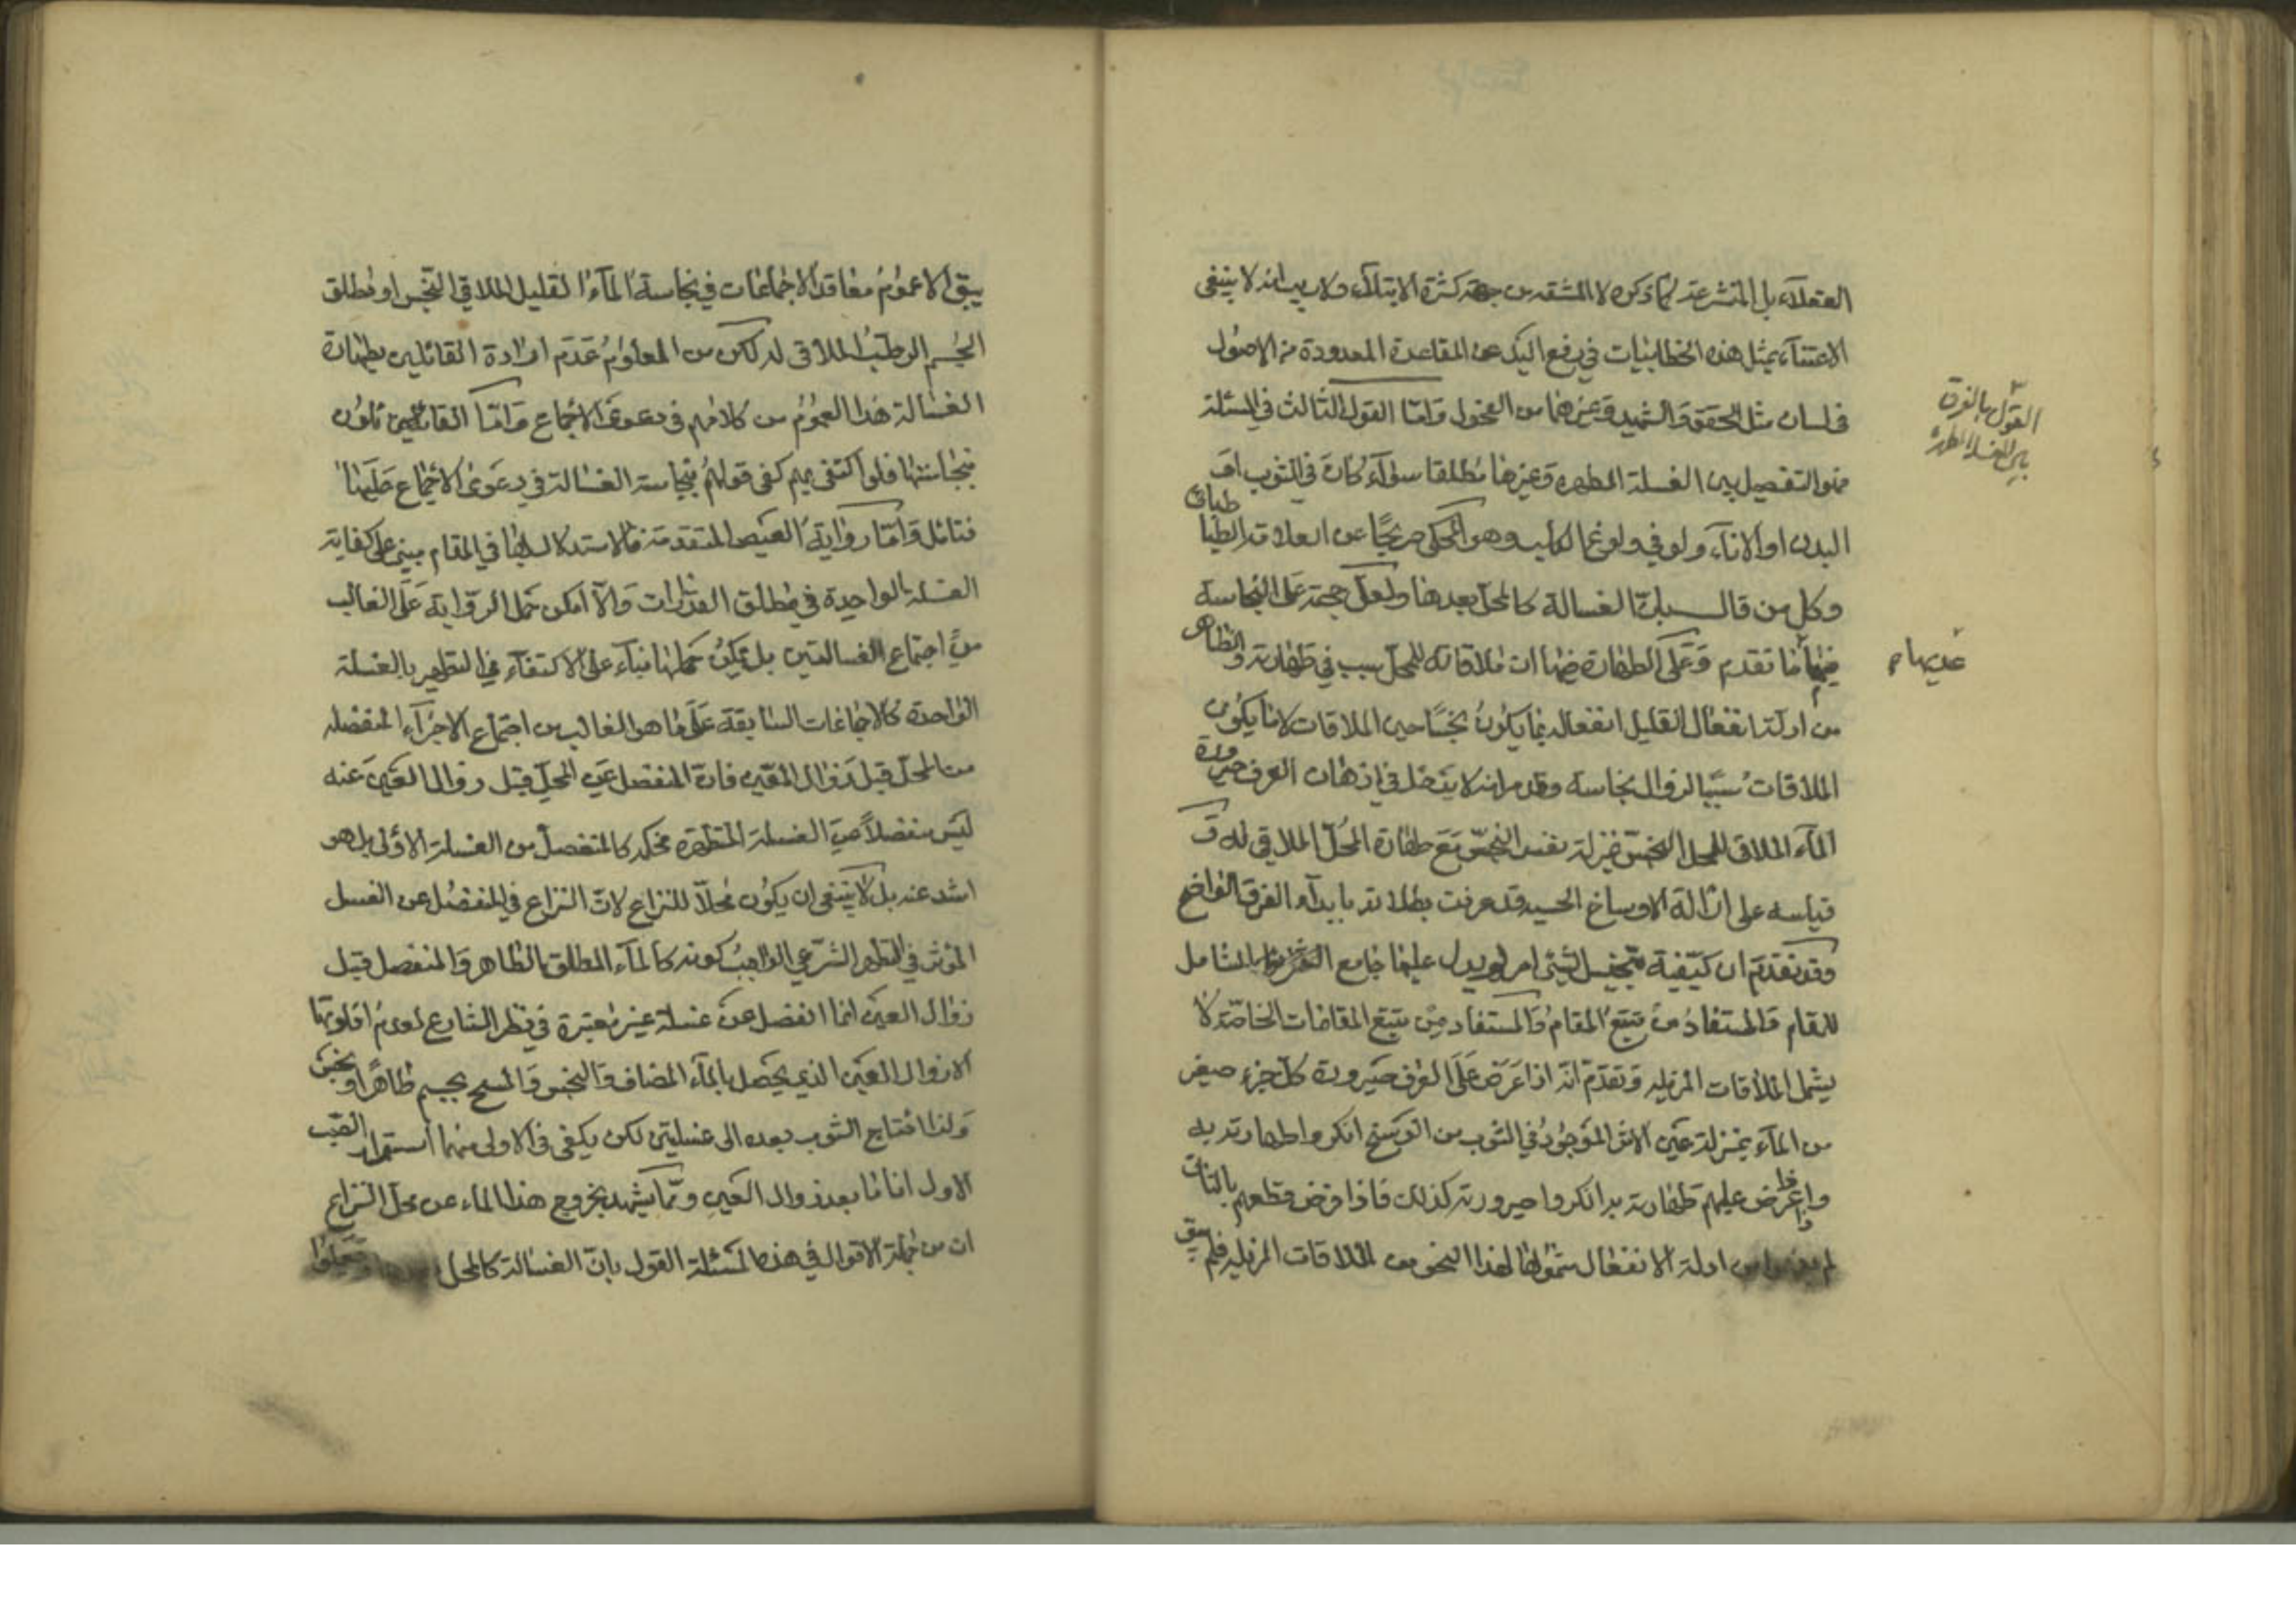 العقلاء بل المتشرعة لما ذكره لا المشقة من جهة كثرة الابتلاء ولا ريب انه لا ينبغي
الاعتناء بمثل هذه الخطابيات في رفع اليد عن القاعدة المعدودة من الاصول
في لسان مثل المحقق والشهيد وغيرهما من الفحول واما القول الثالث في المسئلة
القول بالفرق
بين الغسلة المطهرة
فهو التفصيل بين الغسلة المطهرة وغيرها مطلقا سواء كان في الثوب او
البدن او الاناء ولو في ولوغ الكلب وهو المحكي صريحا عن العلامة الطباطبائي
وكل من قال بان الغسالة كالمحل بعدها ولعل حجته على النجاسة
فيما ما تقدم وعلى الطهارة فيها ان ملاقاته للمحل سبب في طهارته والظاهر
من ادلة انفعال القليل انفعاله بما يكون نجسا حين الملاقات لا ما يكون
الملاقات سببا لزوال نجاسة وقد مر انه لا يتدخل في اذهان العرف صيرورة
الماء الملاقي للمحل النجس بمنزلة نفس النجس مع طهارة المحل الملاقي له و
قياسه على ازالة الاوساخ الحسية قد عرفت بطلانه بابداء الفرق الواضح
وقد تقدم ان كيفية تنجيس الشيء امر لم يدل عليها جامع الشامل
للمقام والمستفاد من تتبع المقام والمستفاد من تتبع المقامات الخاصة لا
يشمل الملاقات المزيلة وتقدم انه اذا عرض على العرف صيرورة كل جزء صغير
من الماء بمنزلة عين الاثر الموجود في الثوب من الوسخ انكروا طهارته به
واذا عرض عليهم طهارته به انكروا صيرورته كذلك فاذا فرض قطعهم بالثاني
لم من ادلة الانفعال شمولها لهذا النحو من الملاقات المزيلة فلم يبق
يبق الا عموم معاقد الاجماعات في نجاسة الماء القليل الملاقي النجس او مطلق
الجسم الرطب الملاقي له لكن من المعلوم عدم ارادة القائلين بطهارة
الغسالة هذا العموم من كلامهم في دعوى الاجماع واما القائلين
بنجاستها فلو اكتفى بهم كفى قولهم بنجاسة الغسالة في دعوى الاجماع عليها
فتامل واما رواية العيص المتقدمة فالاستدلال بها في المقام مبني على كفاية
الغسلة الواحدة في مطلق القذارات والا امكن حمل الرواية على الغالب
من اجتماع الغسالتين بل يمكن حملها بناء على الاكتفاء في التطهير بالغسلة
الواحدة كالاجماعات السابقة على ما هو الغالب من اجتماع الاجزاء المنفصلة
من المحل قبل زوال العين فان المنفصل عن المحل قبل زوال العين عنه
ليس منفصلا عن الغسلة المتطهرة فحكمه كالمنفصل من الغسلة الاولى بل هو
اشد عنه بل لا ينبغي ان يكون محلا للنزاع لان النزاع في المنفصل عن الغسل
المؤثر في التطهر الشرعي الواجب كونه كالماء المطلق الطاهر والمنفصل قبل
زوال العين انما انفصل عن غسلة غير معتبرة في نظر الشارع لعدم افادتها
الا زوال العين الذي يحصل بالماء المضاف والنجس والمسح بجسم طاهرا ونجس
ولذا احتاج الثوب بعده الى غسلتين لكن يكفي في الاولى منهما استمرار الصب
الاول انا ما بعد زوال العين ومما يشهد بخروج هذا الماء عن محل النزاع
ان من جملة الاقوال في هذه المسئلة القول بان الغسالة كالمحل